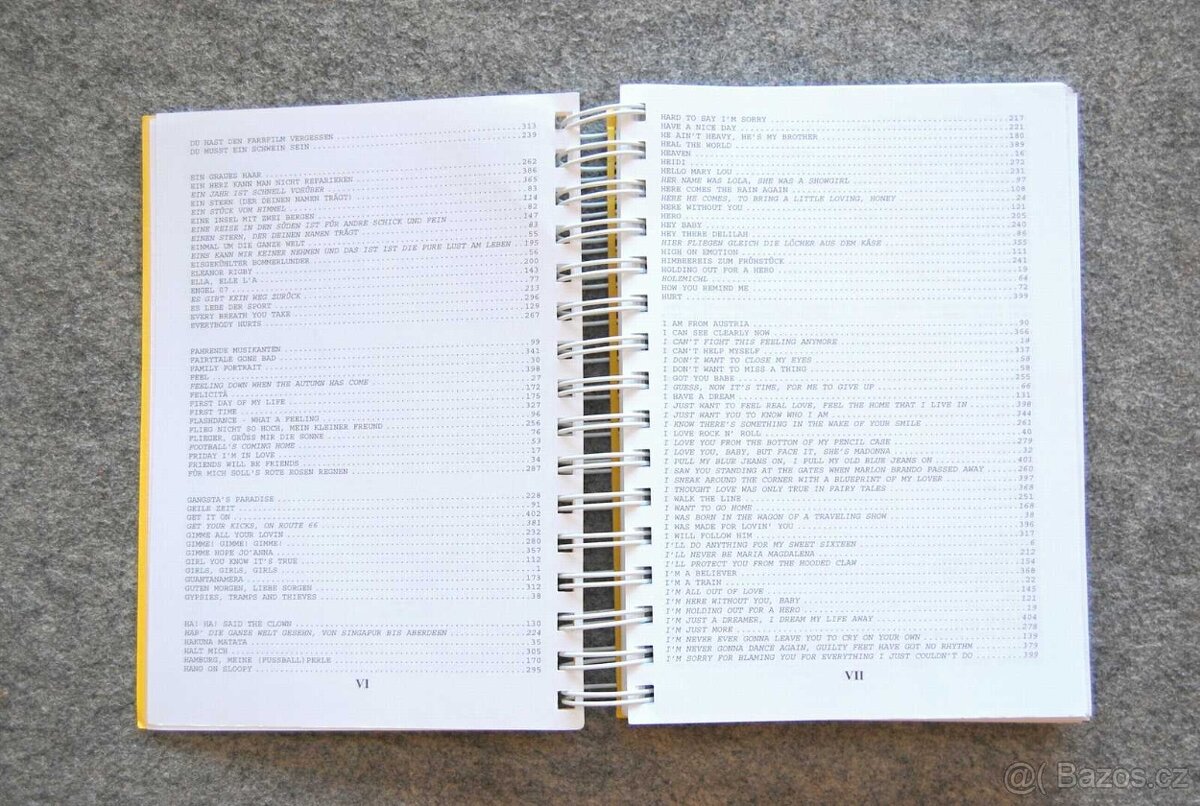 DU HAST DEN FARBFILM VERGESSEN 313
DU MUSST EIN SCHWEIN SEIN 239
EIN GRAUES HAAR 262
EIN HERZ KANN MAN NICHT REPARIEREN 386
EIN JAHR IST SCHNELL VORÜBER 365
EIN STERN (DER DEINEN NAMEN TRÄGT) 83
EIN STÜCK VOM HIMMEL 114
EINE INSEL MIT ZWEI BERGEN 82
EINE REISE IN DEN SÜDEN IST FÜR ANDRE SCHICK UND FEIN 147
EINEN STERN, DER DEINEN NAMEN TRÄGT 83
EINMAL UM DIE GANZE WELT 55
EINS KANN MIR KEINER NEHMEN UND DAS IST IST DIE PURE LUST AM LEBEN 195
EISGEKÜHLTER BOMMERLUNDER 56
ELEANOR RIGBY 200
ELLA, ELLE L'A 143
ENGEL 07 77
ES GIBT KEIN WEG ZURÜCK 213
ES LEBE DER SPORT 296
EVERY BREATH YOU TAKE 129
EVERYBODY HURTS 267
FAHRENDE MUSIKANTEN 99
FAIRYTALE GONE BAD 341
FAMILY PORTRAIT 30
FEEL 398
FEELING DOWN WHEN THE AUTUMN HAS COME 27
FELICITÀ 172
FIRST DAY OF MY LIFE 175
FIRST TIME 327
FLASHDANCE - WHAT A FEELING 96
FLIEG NICHT SO HOCH, MEIN KLEINER FREUND 256
FLIEGER, GRÜSS MIR DIE SONNE 76
FOOTBALL'S COMING HOME 53
FRIDAY I'M IN LOVE 17
FRIENDS WILL BE FRIENDS 34
FÜR MICH SOLL'S ROTE ROSEN REGNEN 287
GANGSTA'S PARADISE 228
GEILE ZEIT 91
GET IT ON 402
GET YOUR KICKS, ON ROUTE 66 381
GIMME ALL YOUR LOVIN 232
GIMME! GIMME! GIMME! 280
GIMME HOPE JO'ANNA 357
GIRL YOU KNOW IT'S TRUE 112
GIRLS, GIRLS, GIRLS 1
GUANTANAMERA 173
GUTEN MORGEN, LIEBE SORGEN 312
GYPSIES, TRAMPS AND THIEVES 38
HA! HA! SAID THE CLOWN 130
HAB' DIE GANZE WELT GESEHN, VON SINGAPUR BIS ABERDEEN 224
HAKUNA MATATA 35
HALT MICH 305
HAMBURG, MEINE (FUSSBALL)PERLE 170
HANG ON SLOOPY 295
VI
HARD TO SAY I'M SORRY 217
HAVE A NICE DAY 221
HE AIN'T HEAVY, HE'S MY BROTHER 180
HEAL THE WORLD 389
HEAVEN 16
HEIDI 272
HELLO MARY LOU 231
HER NAME WAS LOLA, SHE WAS A SHOWGIRL 97
HERE COMES THE RAIN AGAIN 108
HERE HE COMES, TO BRING A LITTLE LOVING, HONEY 24
HERE WITHOUT YOU 121
HERO 205
HEY BABY 240
HEY THERE DELILAH 86
HIER FLIEGEN GLEICH DIE LÖCHER AUS DEM KÄSE 355
HIGH ON EMOTION 111
HIMBEEREIS ZUM FRÜHSTÜCK 241
HOLDING OUT FOR A HERO 19
HOLZMICHL 64
HOW YOU REMIND ME 72
HURT 399
I AM FROM AUSTRIA 90
I CAN SEE CLEARLY NOW 366
I CAN'T FIGHT THIS FEELING ANYMORE 18
I CAN'T HELP MYSELF 337
I DON'T WANT TO CLOSE MY EYES 58
I DON'T WANT TO MISS A THING 58
I GOT YOU BABE 255
I GUESS, NOW IT'S TIME, FOR ME TO GIVE UP 66
I HAVE A DREAM 131
I JUST WANT TO FEEL REAL LOVE, FEEL THE HOME THAT I LIVE IN 398
I JUST WANT YOU TO KNOW WHO I AM 344
I KNOW THERE'S SOMETHING IN THE WAKE OF YOUR SMILE 261
I LOVE ROCK N' ROLL 40
I LOVE YOU FROM THE BOTTOM OF MY PENCIL CASE 279
I LOVE YOU, BABY, BUT FACE IT, SHE'S MADONNA 32
I PULL MY BLUE JEANS ON, I PULL MY OLD BLUE JEANS ON 401
I SAW YOU STANDING AT THE GATES WHEN MARLON BRANDO PASSED AWAY 260
I SNEAK AROUND THE CORNER WITH A BLUEPRINT OF MY LOVER 397
I THOUGHT LOVE WAS ONLY TRUE IN FAIRY TALES 368
I WALK THE LINE 251
I WANT TO GO HOME 168
I WAS BORN IN THE WAGON OF A TRAVELING SHOW 38
I WAS MADE FOR LOVIN' YOU 396
I WILL FOLLOW HIM 317
I'LL DO ANYTHING FOR MY SWEET SIXTEEN 6
I'LL NEVER BE MARIA MAGDALENA 212
I'LL PROTECT YOU FROM THE HOODED CLAW 154
I'M A BELIEVER 368
I'M A TRAIN 22
I'M ALL OUT OF LOVE 145
I'M HERE WITHOUT YOU, BABY 121
I'M HOLDING OUT FOR A HERO 19
I'M JUST A DREAMER, I DREAM MY LIFE AWAY 404
I'M JUST MORE 278
I'M NEVER EVER GONNA LEAVE YOU TO CRY ON YOUR OWN 139
I'M NEVER GONNA DANCE AGAIN, GUILTY FEET HAVE GOT NO RHYTHM 379
I'M SORRY FOR BLAMING YOU FOR EVERYTHING I JUST COULDN'T DO 399
VII
@( Bazos.cz